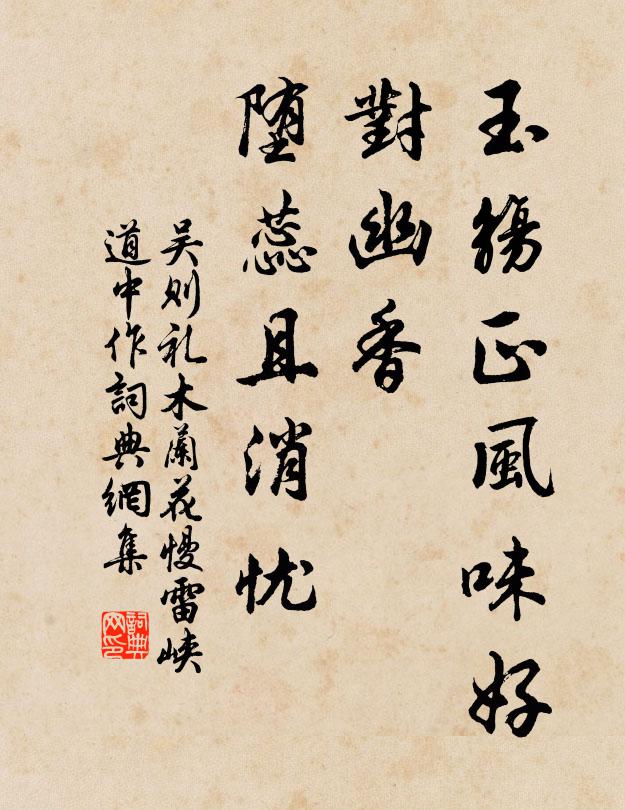 玉觴正風味好
對幽香
堕蕊且消忧
吴则礼木蘭花慢雷峡
道中作詞典網集
詞典
网印